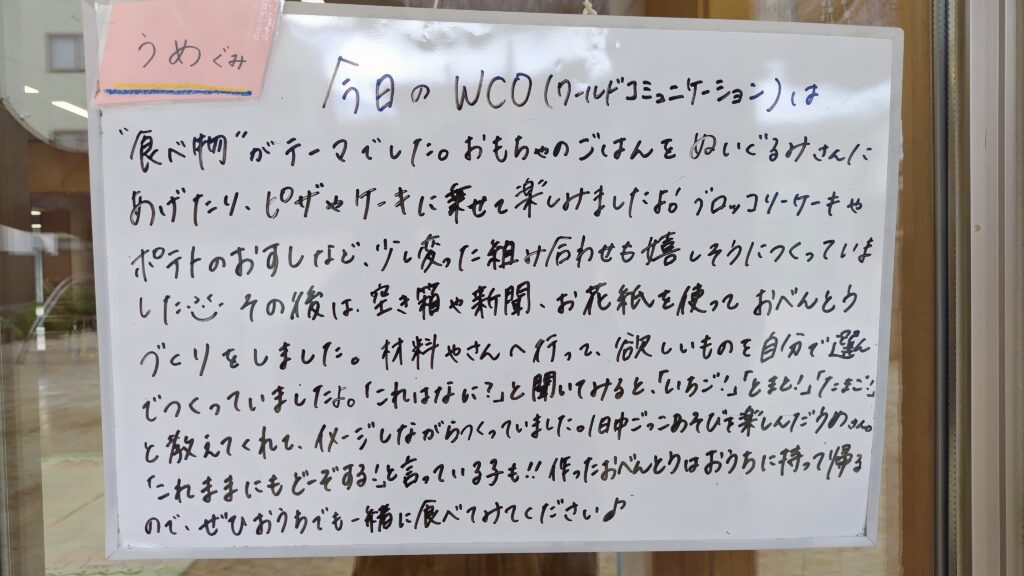 うめぐみ
今日の WCO (ワールドコミュニケーション) は
"食べ物"がテーマでした。おもちゃのごはんを ぬいぐるみさんに
あげたり、ピザやケーキに乗せて楽しみましたよ! ブロッコリーケーキや
ポテトのおすしなど、少し変った組み合わせも嬉しそうにつくっていま
した その後は、空き箱や新聞、お花紙を使って おべんとう
づくりをしました。材料やさんへ行って、欲しいものを自分で選ん
でつくっていましたよ。「これはなに?」と聞いてみると、「いちご!」「とまと!」「たまご!」
と教えてくれて、イメージしながらつくっていました。1日中ごっこあそびを楽しんだうめさん。
「これままにもどーぞする!」と言っている子も!! 作ったおべんとうはおうちに持って帰る
ので、ぜひおうちでも一緒に食べてみてください♪